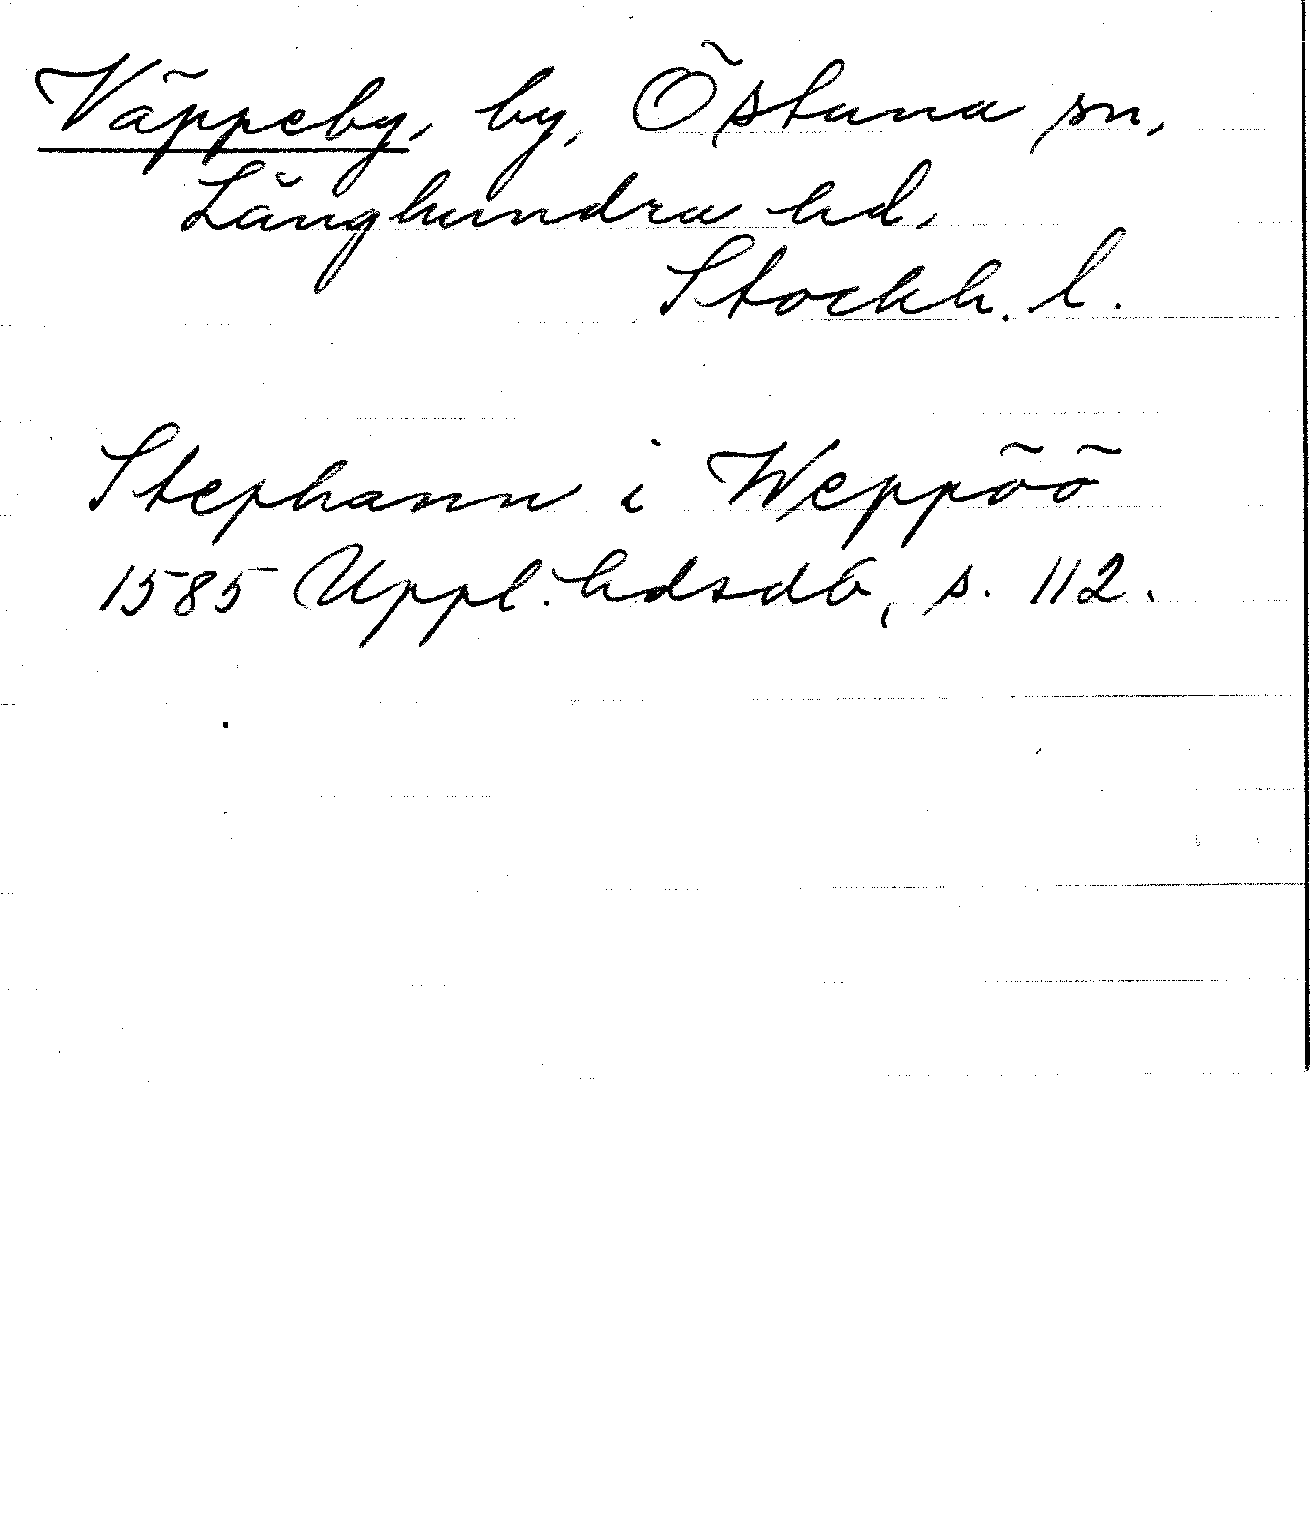 Väppeby, by, Östuna sn,
Långhundra hd,
Stockh. l.
Stephann i Weppöö
1585 Uppl. hdsdb, s. 112.